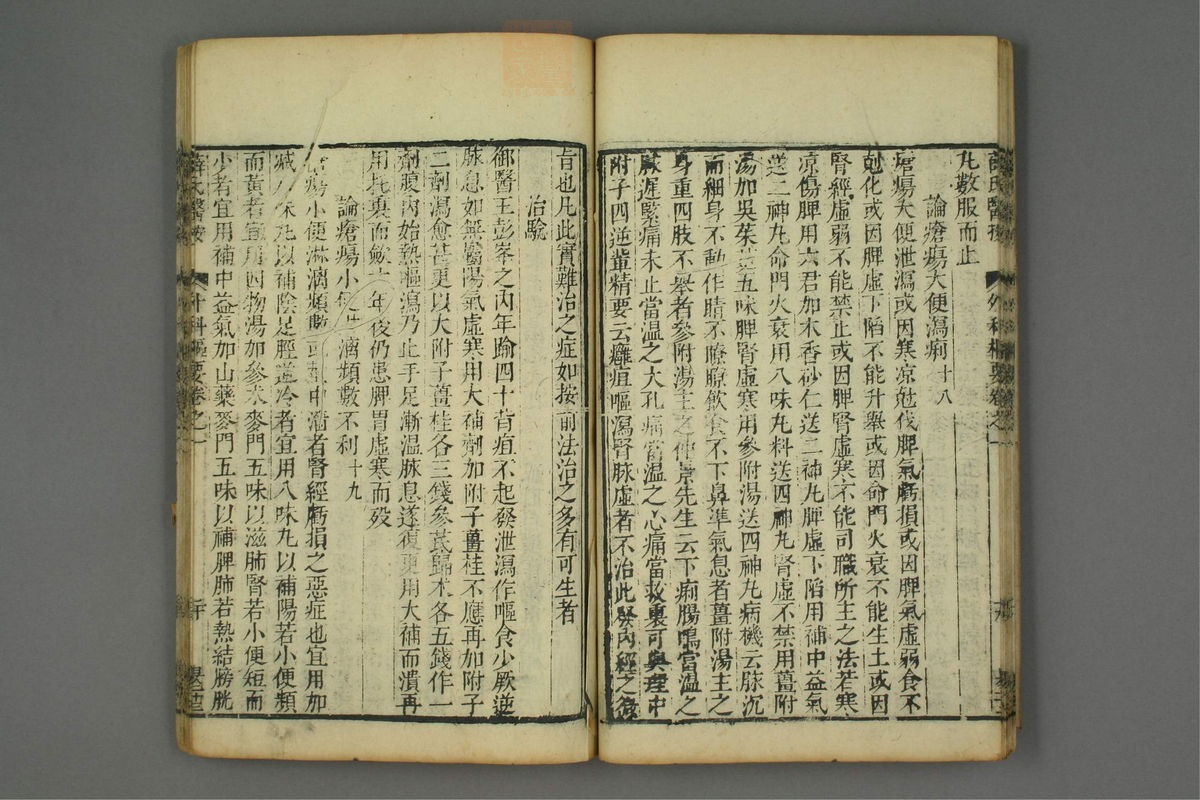 薛氏醫按 外科樞要卷之一
丸數服而止
論瘡瘍大便瀉痢十八
瘡瘍大便泄瀉或因寒凉尅伐脾氣虧損或因脾氣虛弱食不
尅化或因脾虛下陷不能升舉或因命門火衰不能生土或因
腎經虛弱不能禁止或因脾腎虛寒不能司職所主之法若寒
凉傷脾用六君加木香砂仁送二神丸脾虛下陷用補中益氣
送二神丸命門火衰用八味丸料送四神丸腎虛不禁用薑附
湯加吳茱萸五味脾腎虛寒用參附湯送四神丸病機云脉沉
而細身不動作睛不瞭瞭飲食不下鼻準氣息者薑附湯主之
身重四肢不舉者參附湯主之仲景先生云下痢腸鳴當溫之
脉遲緊痛未止當溫之大孔痛當溫之心痛當救裏可與理中
附子四逆輩精要云癰疽嘔瀉腎脉虛者不治此發內經之微
旨也凡此實難治之症如按前法治之多有可生者
治驗
御醫王彭峯之內年踰四十背疽不起發泄瀉作嘔食少厥逆
脉息如無屬陽氣虛寒用大補劑加附子薑桂不應再加附子
二劑瀉愈甚更以大附子薑桂各三錢參芪歸朮各五錢作一
劑腹內始熱嘔瀉乃止手足漸溫脉息遂復更用大補而潰再
用托裏而斂 年後仍患脾胃虛寒而歿
論瘡瘍小便淋漓頻數不利十九
瘡瘍小便淋漓頻數或莖中澀者腎經虧損之惡症也宜用加
減八味丸以補陰足脛逆冷者宜用八味丸以補陽若小便頻
而黃者宜用四物湯加參朮麥門五味以滋肺腎若小便短而
少者宜用補中益氣加山藥麥門五味以補脾肺若熱結膀胱
薛氏醫按 外科樞要卷之一 二十